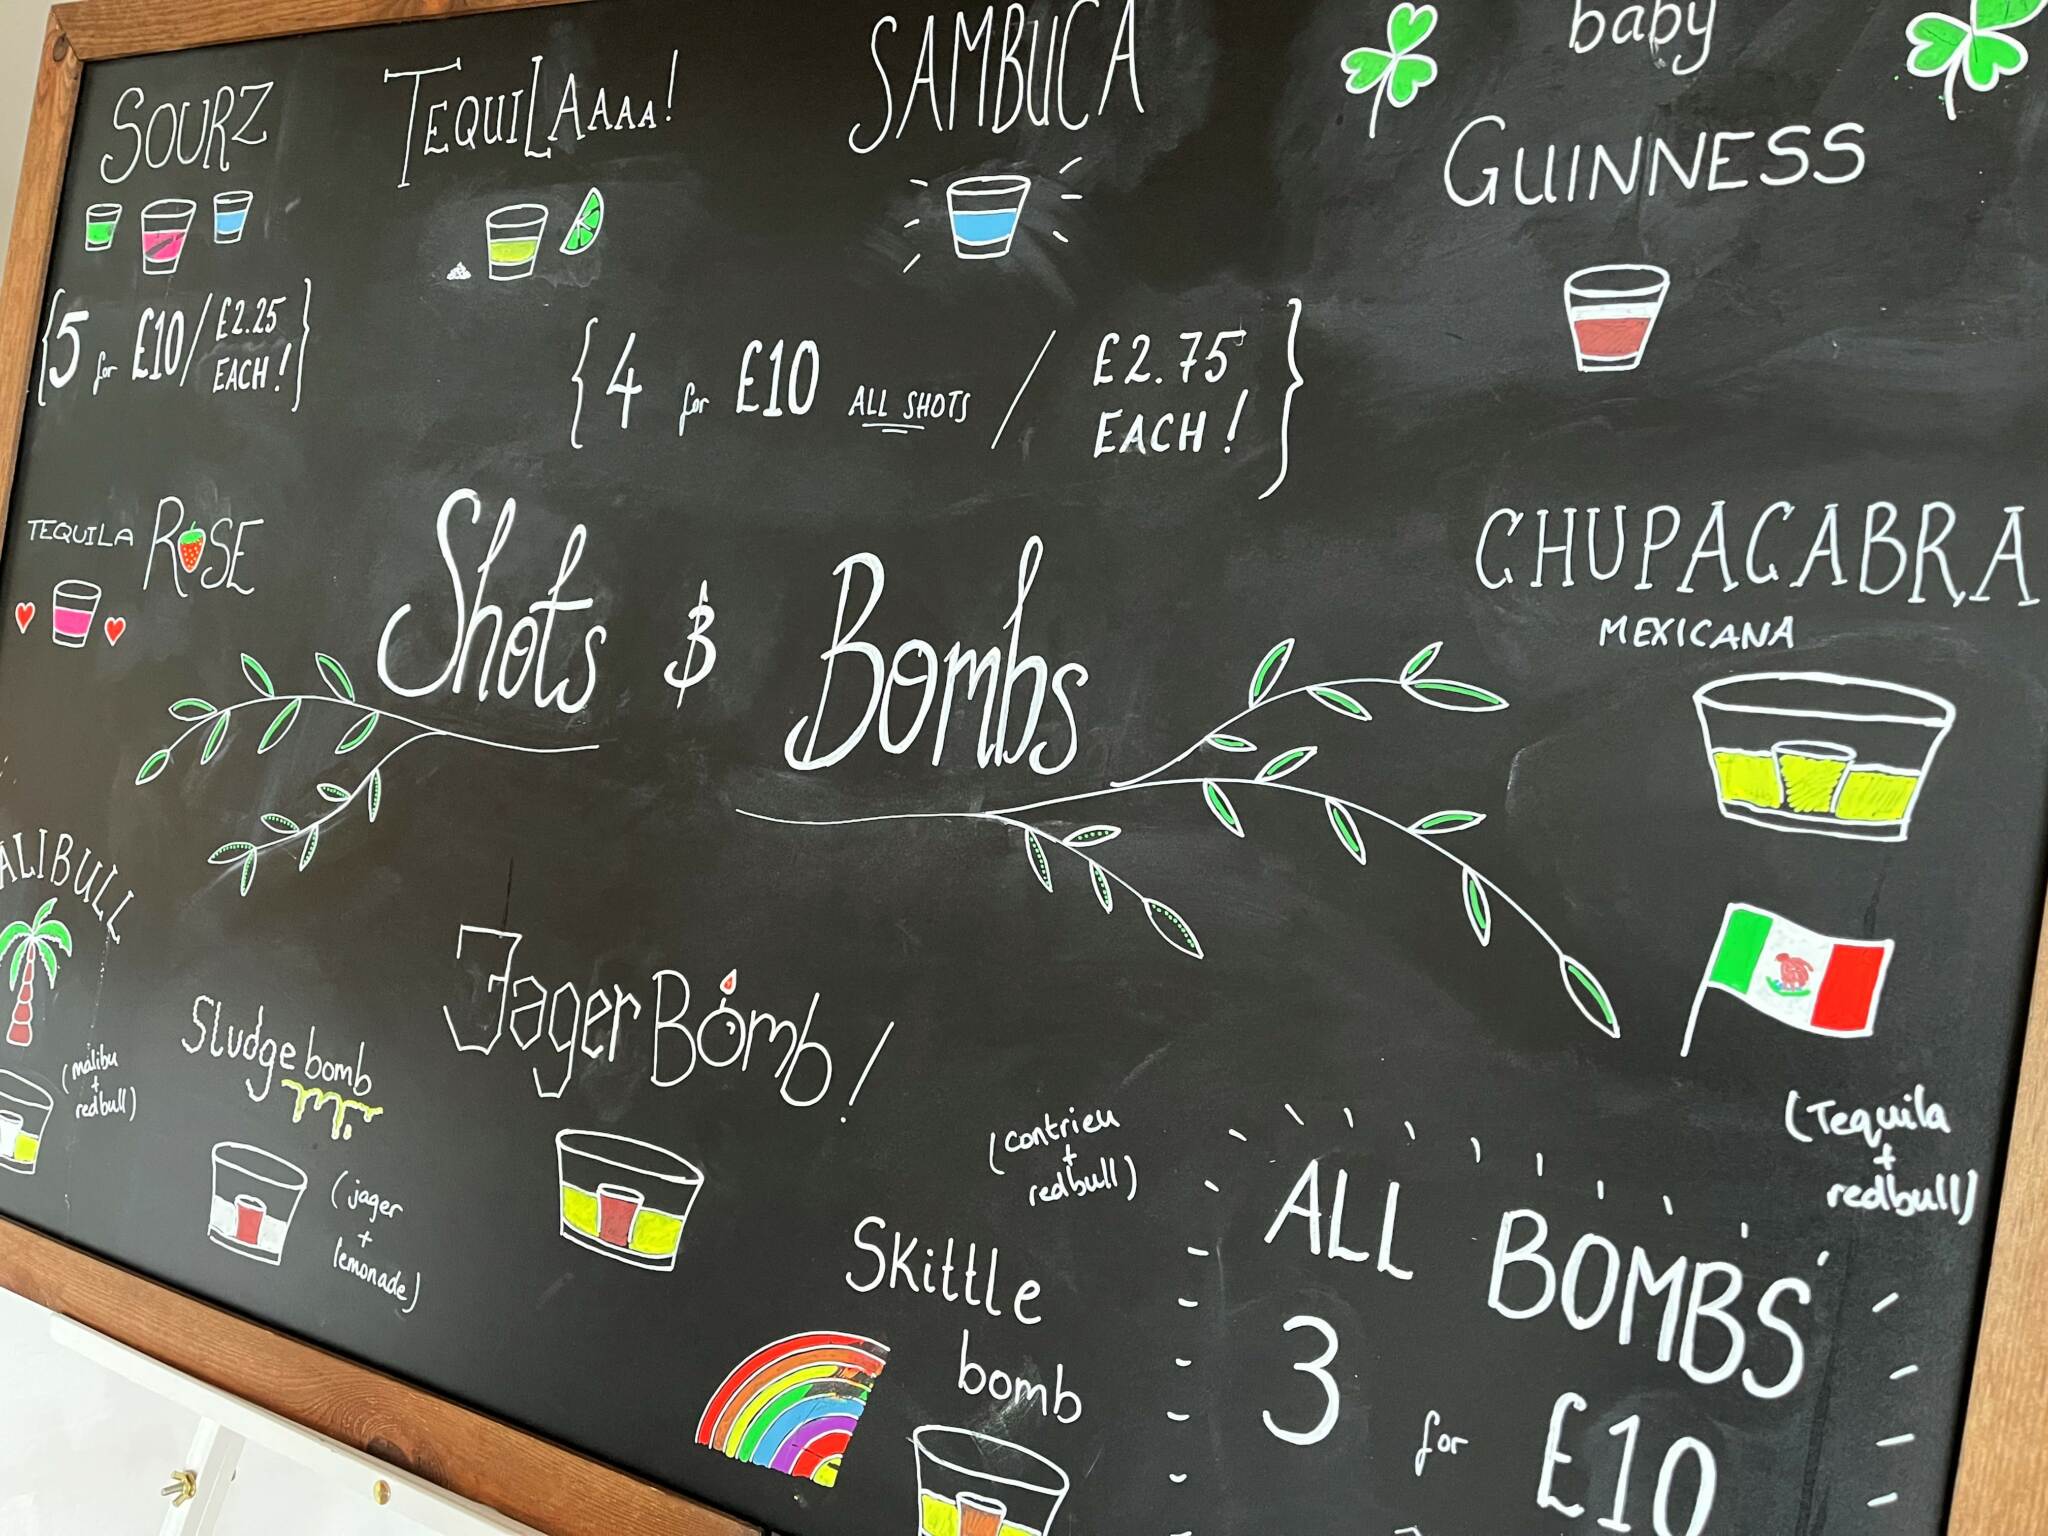 SOURZ
5 for £10 / £2.25
EACH!
TEQUILAAAA!
SAMBUCA
4 for £10 ALL SHOTS / £2.75
EACH!
baby
GUINNESS
TEQUILA ROSE
Shots & Bombs
CHUPACABRA
MEXICANA
(Tequila
+
redbull)
ALIBULL
(malibu
+
redbull)
Sludge bomb
(jager
+
lemonade)
JagerBomb!
(contrieu
+
redbull)
Skittle
bomb
ALL BOMBS
3 for £10